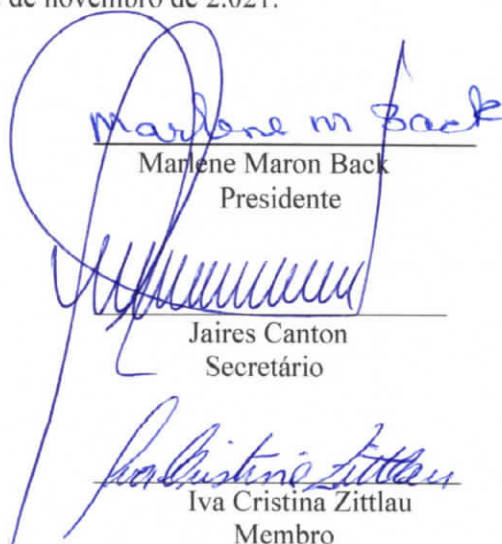 de novembro de 2.021.
Marlene m Back
Marlene Maron Back
Presidente
Jaires Canton
Secretário
Iva Cristina Zittlau
Iva Cristina Zittlau
Membro